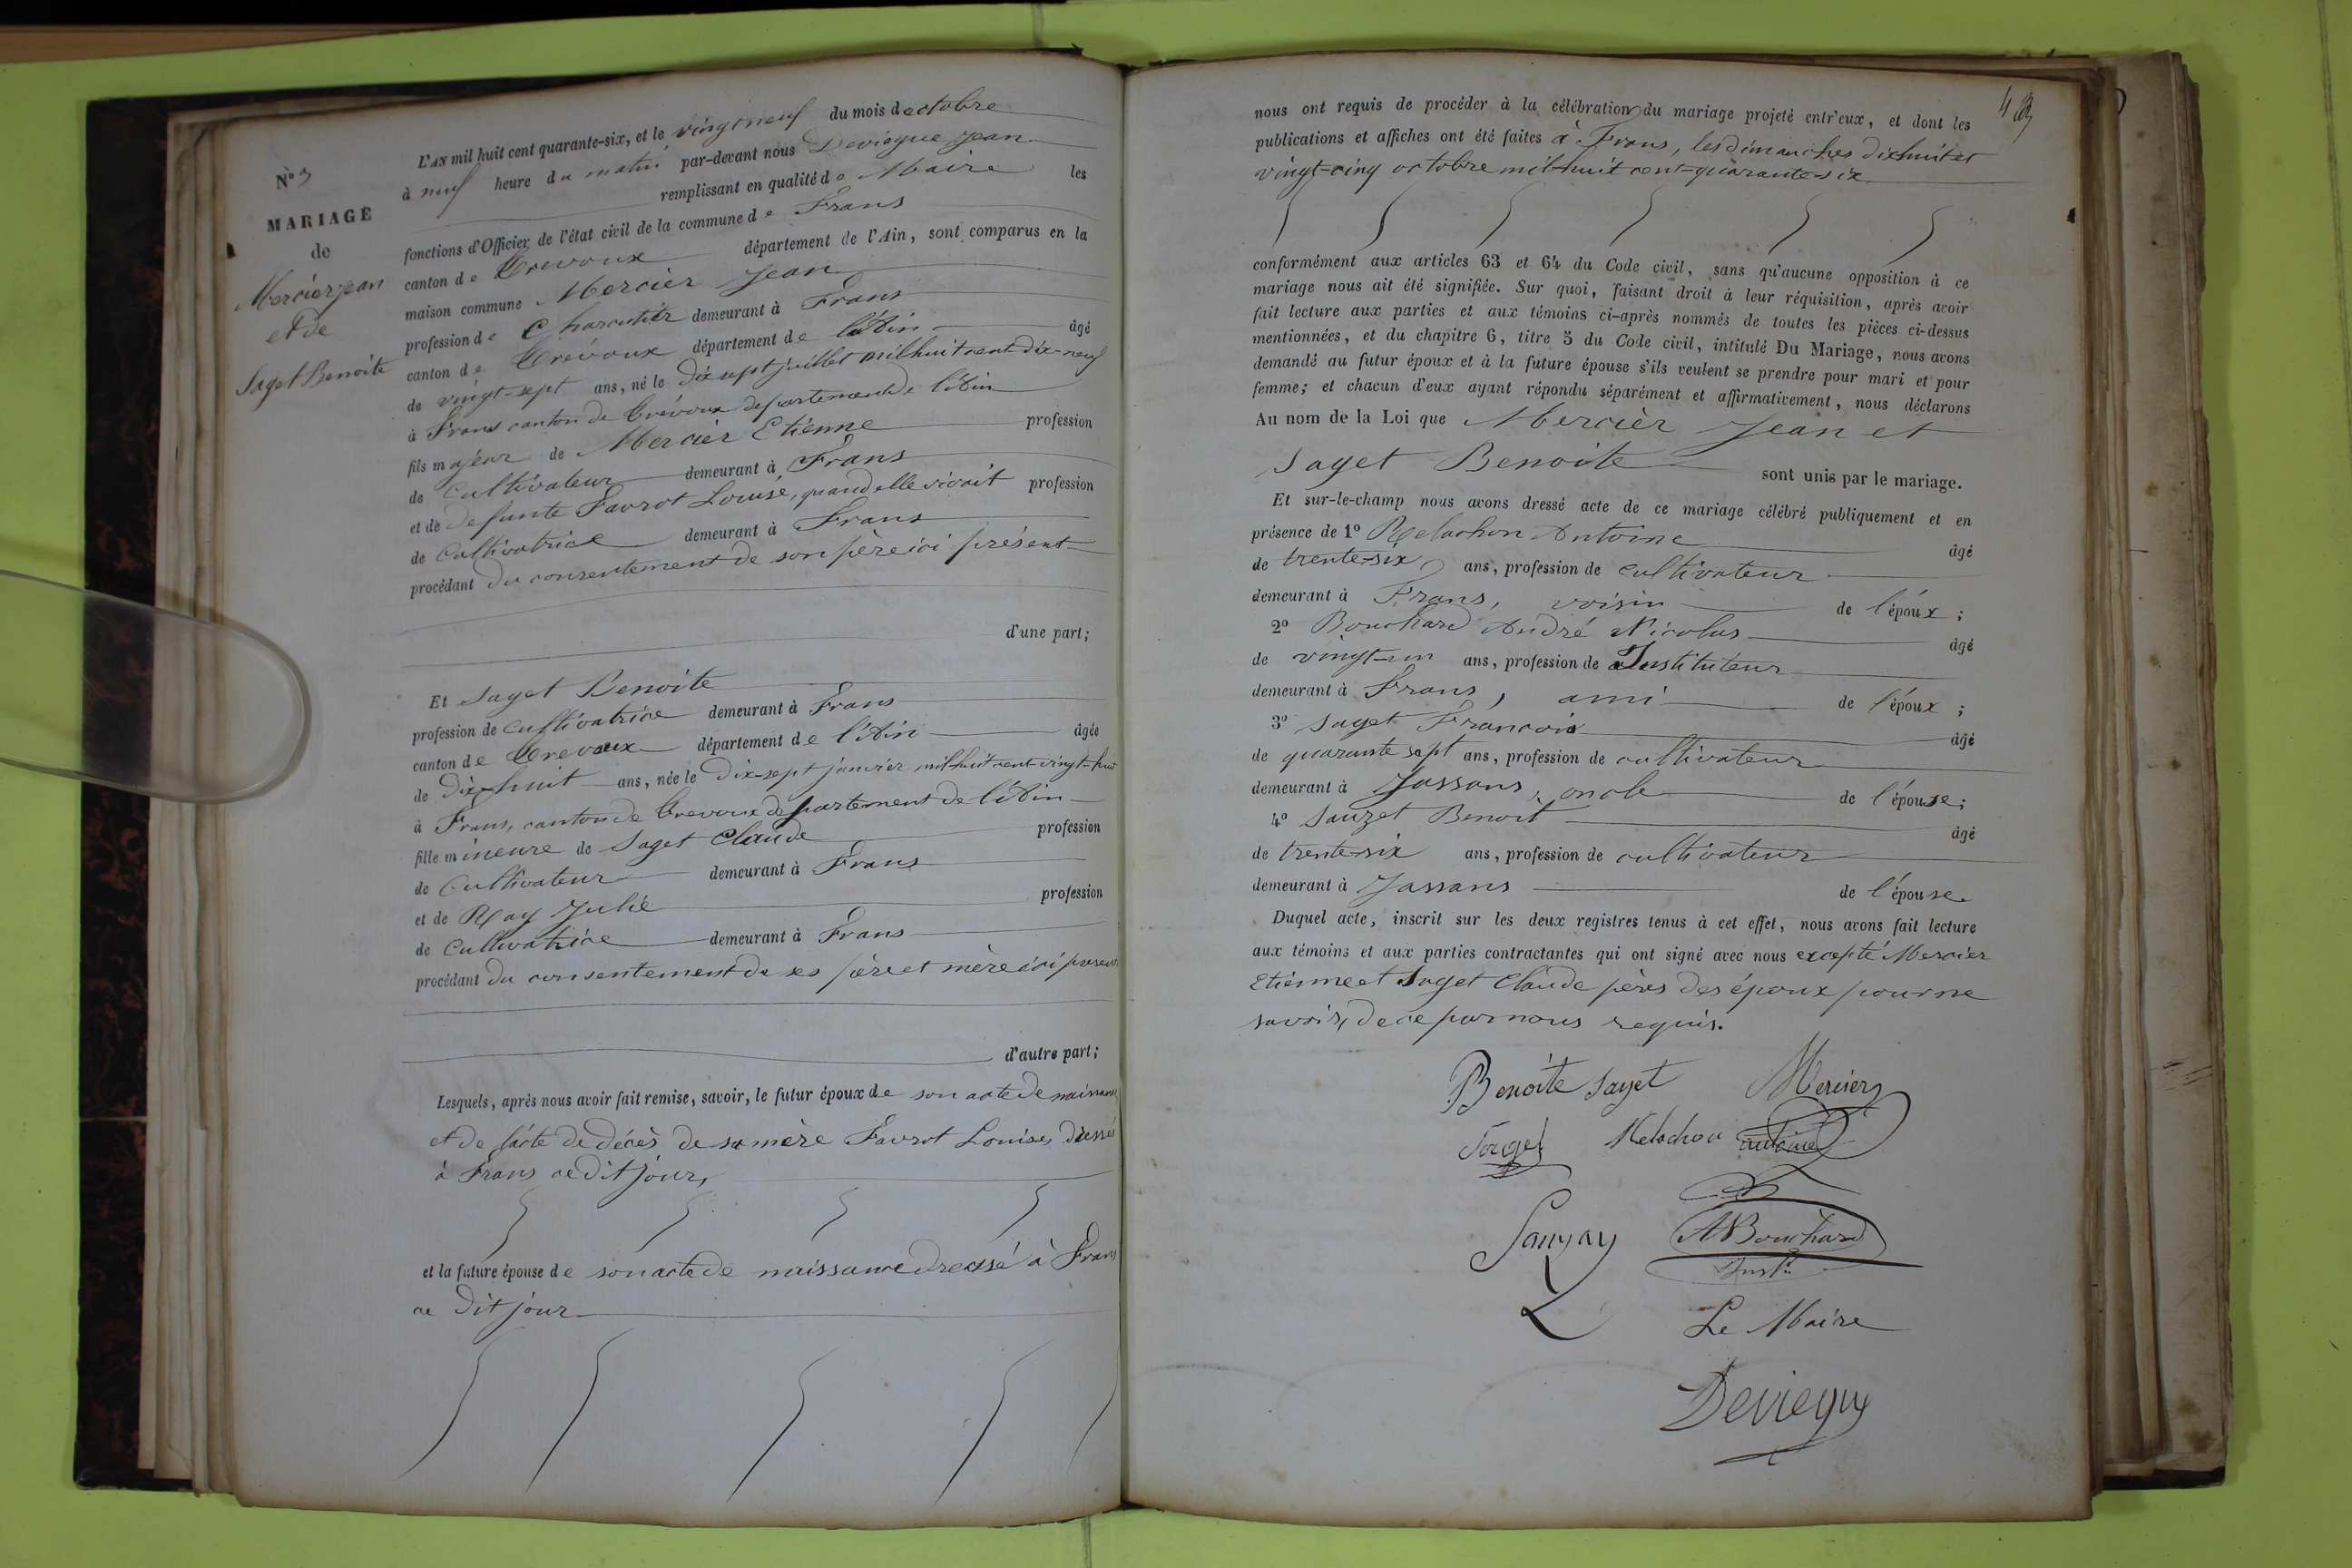 N° 3
MARIAGE
de
Mercier jean
et de
Saget Benoite
L'AN mil huit cent quarante-six, et le vingt neuf du mois d octobre
à neuf heure du matin par-devant nous Deviegue Jean
remplissant en qualité de Maire les
fonctions d'Officier de l'état civil de la commune de Frans
canton de Trevoux département de l'Ain, sont comparus en la
maison commune Mercier Jean
profession de Charcutier demeurant à Frans
canton de Trévoux département de l'Ain âgé
de vingt-sept ans, né le dix sept juillet mil huit cent dix-neuf
à Frans canton de Trévoux département de l'Ain
fils majeur de Mercier Etienne profession
de Cultivateur demeurant à Frans
et de defunte Favrot Louise, quand elle vivait profession
de Cultivatrice demeurant à Frans
procédant du consentement de son père ici présent
d'une part;
Et Saget Benoite
profession de cultivatrice demeurant à Frans
canton de Trevoux département de l'Ain âgée
de Dix-huit ans, née le Dix-sept janvier mil huit cent vingt-huit
à Frans, canton de Trevoux département de l'Ain
fille mineure de Saget Claude profession
de Cultivateur demeurant à Frans
et de Ray Julie profession
de Cultivatrice demeurant à Frans
procédant du consentement de ses père et mère ici présents
d'autre part;
Lesquels, après nous avoir fait remise, savoir, le futur époux de son acte de naissance
et de l'acte de décès de sa mère Favrot Louise, dressés
à Frans ce dit jour,
et la future épouse de son acte de naissance dressé à Frans
ce dit jour
nous ont requis de procéder à la célébration du mariage projeté entr'eux, et dont les
publications et affiches ont été faites à Frans, les dimanches dix huit et
vingt-cinq octobre mil huit cent quarante-six
conformément aux articles 63 et 64 du Code civil, sans qu'aucune opposition à ce
mariage nous ait été signifiée. Sur quoi, faisant droit à leur réquisition, après avoir
fait lecture aux parties et aux témoins ci-après nommés de toutes les pièces ci-dessus
mentionnées, et du chapitre 6, titre 5 du Code civil, intitulé Du Mariage, nous avons
demandé au futur époux et à la future épouse s'ils veulent se prendre pour mari et pour
femme; et chacun d'eux ayant répondu séparément et affirmativement, nous déclarons
Au nom de la Loi que Mercier Jean et
Saget Benoite sont unis par le mariage.
Et sur-le-champ nous avons dressé acte de ce mariage célébré publiquement et en
présence de 1° Relachon Antoine âgé
de trente-six ans, profession de cultivateur
demeurant à Frans, voisin de l'époux;
2° Bouchard André Nicolas âgé
de vingt-un ans, profession de Instituteur
demeurant à Frans, ami de l'époux;
3° Saget François âgé
de quarante sept ans, profession de cultivateur
demeurant à Jassans, oncle de l'épouse;
4° Sauzet Benoit âgé
de trente-six ans, profession de cultivateur
demeurant à Jassans de l'épouse
Duquel acte, inscrit sur les deux registres tenus à cet effet, nous avons fait lecture
aux témoins et aux parties contractantes qui ont signé avec nous excepté Mercier
Etienne et Saget Claude pères des époux pour ne
savoir, de ce par nous requis.
Benoite Saget Mercier
Saget Relachon antoine
Sauzay ABouchard
Inst.r
Le Maire
Deviegue